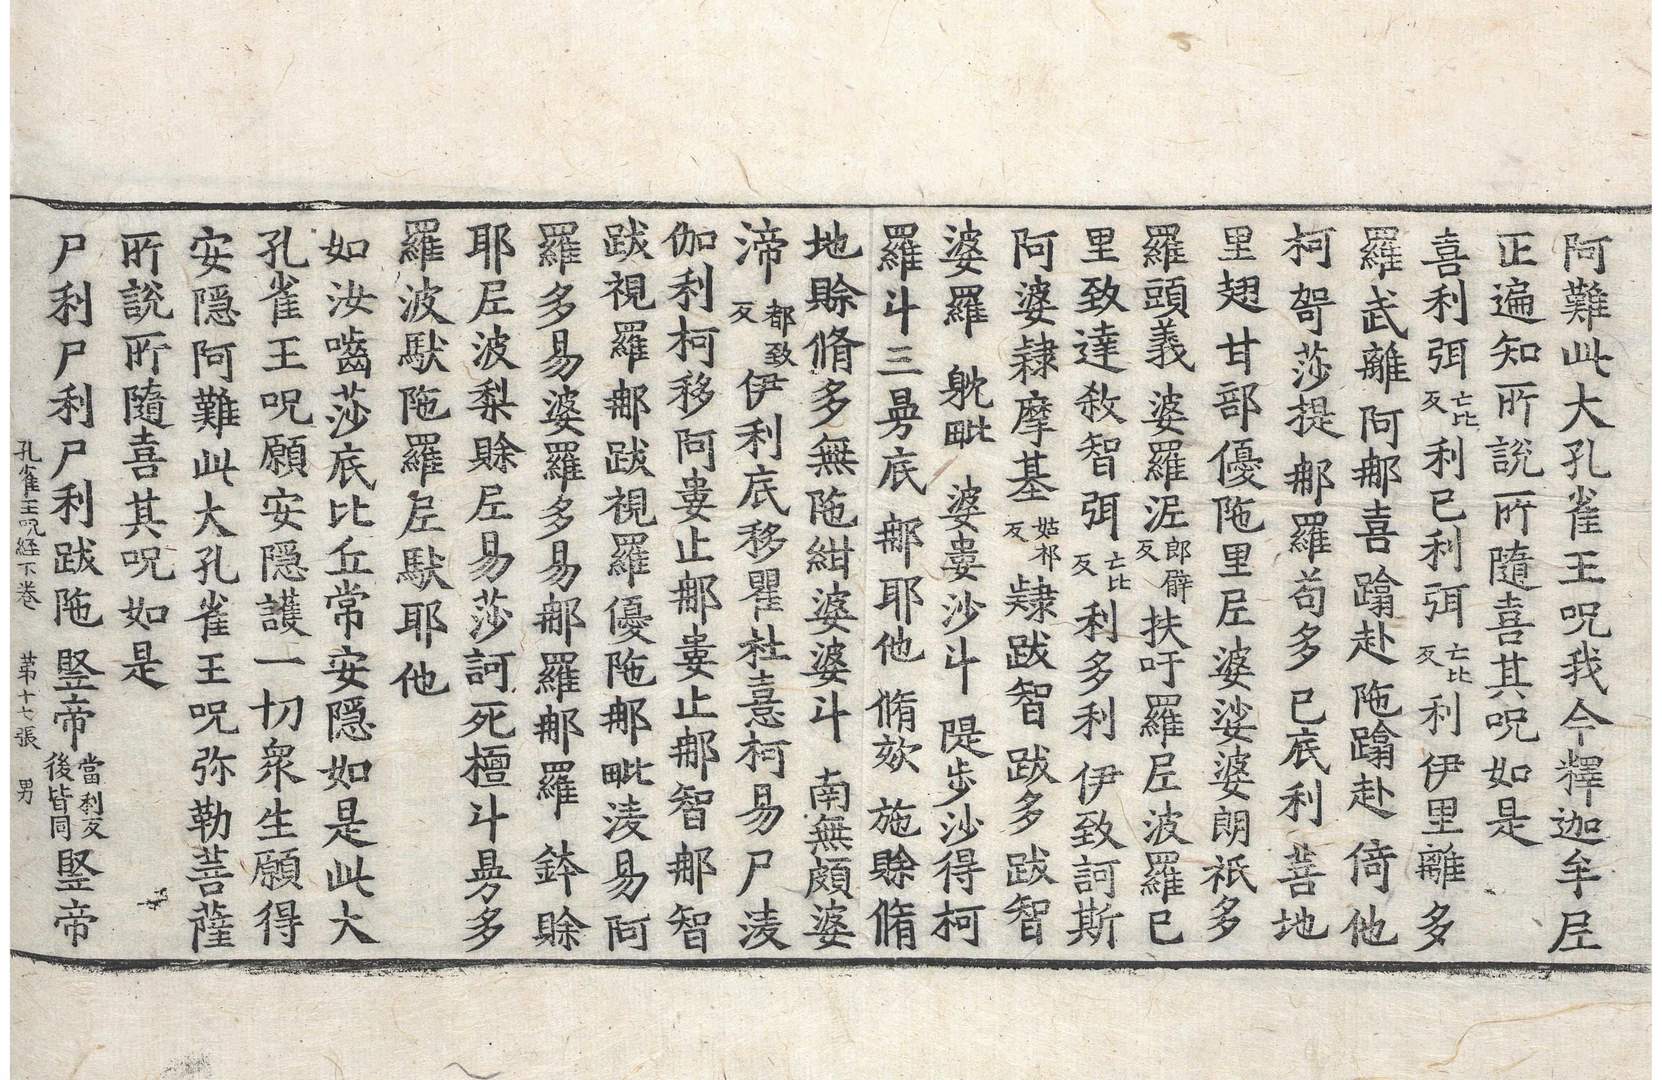 阿難此大孔雀王呪我今釋迦牟尼
正遍知所說所隨喜其呪如是
喜利弭亡比反利已利弭亡比反利伊里離多
羅武離阿那喜踰赴陁踰赴倚他
柯哿莎提那羅苟多已底利菩地
里翅甘部優陁里尼婆娑婆朗祇多
羅頭義婆羅泥郎僻反扶吁羅尼波羅已
里致達敘智弭亡比反利多利伊致訶斯
阿婆隷摩基姑祁反隷跋智跋多跋智
婆羅躭毗婆婁沙斗隄步沙得柯
羅斗三昜底那耶他脩欬施賒脩
地賒脩多無陁紺婆婆斗南無頗婆
渧都致反伊利底移瞿社憙柯易尸淩
伽利柯移阿婁止那婁止那智那智
跋視羅那跋視羅優陁那毗淩易阿
羅多易婆羅多易那羅那羅鉢賒
耶尼波梨賒尼易莎訶死檀斗昜多
羅波馱陁羅尼馱耶他
如汝嚙莎底比丘常安隱如是此大
孔雀王呪願安隱護一切衆生願得
安隱阿難此大孔雀王呪弥勒菩薩
所說所隨喜其呪如是
尸利尸利尸利跋陁竪帝當利反後皆同竪帝
孔雀王呪経下卷 第十七張 男